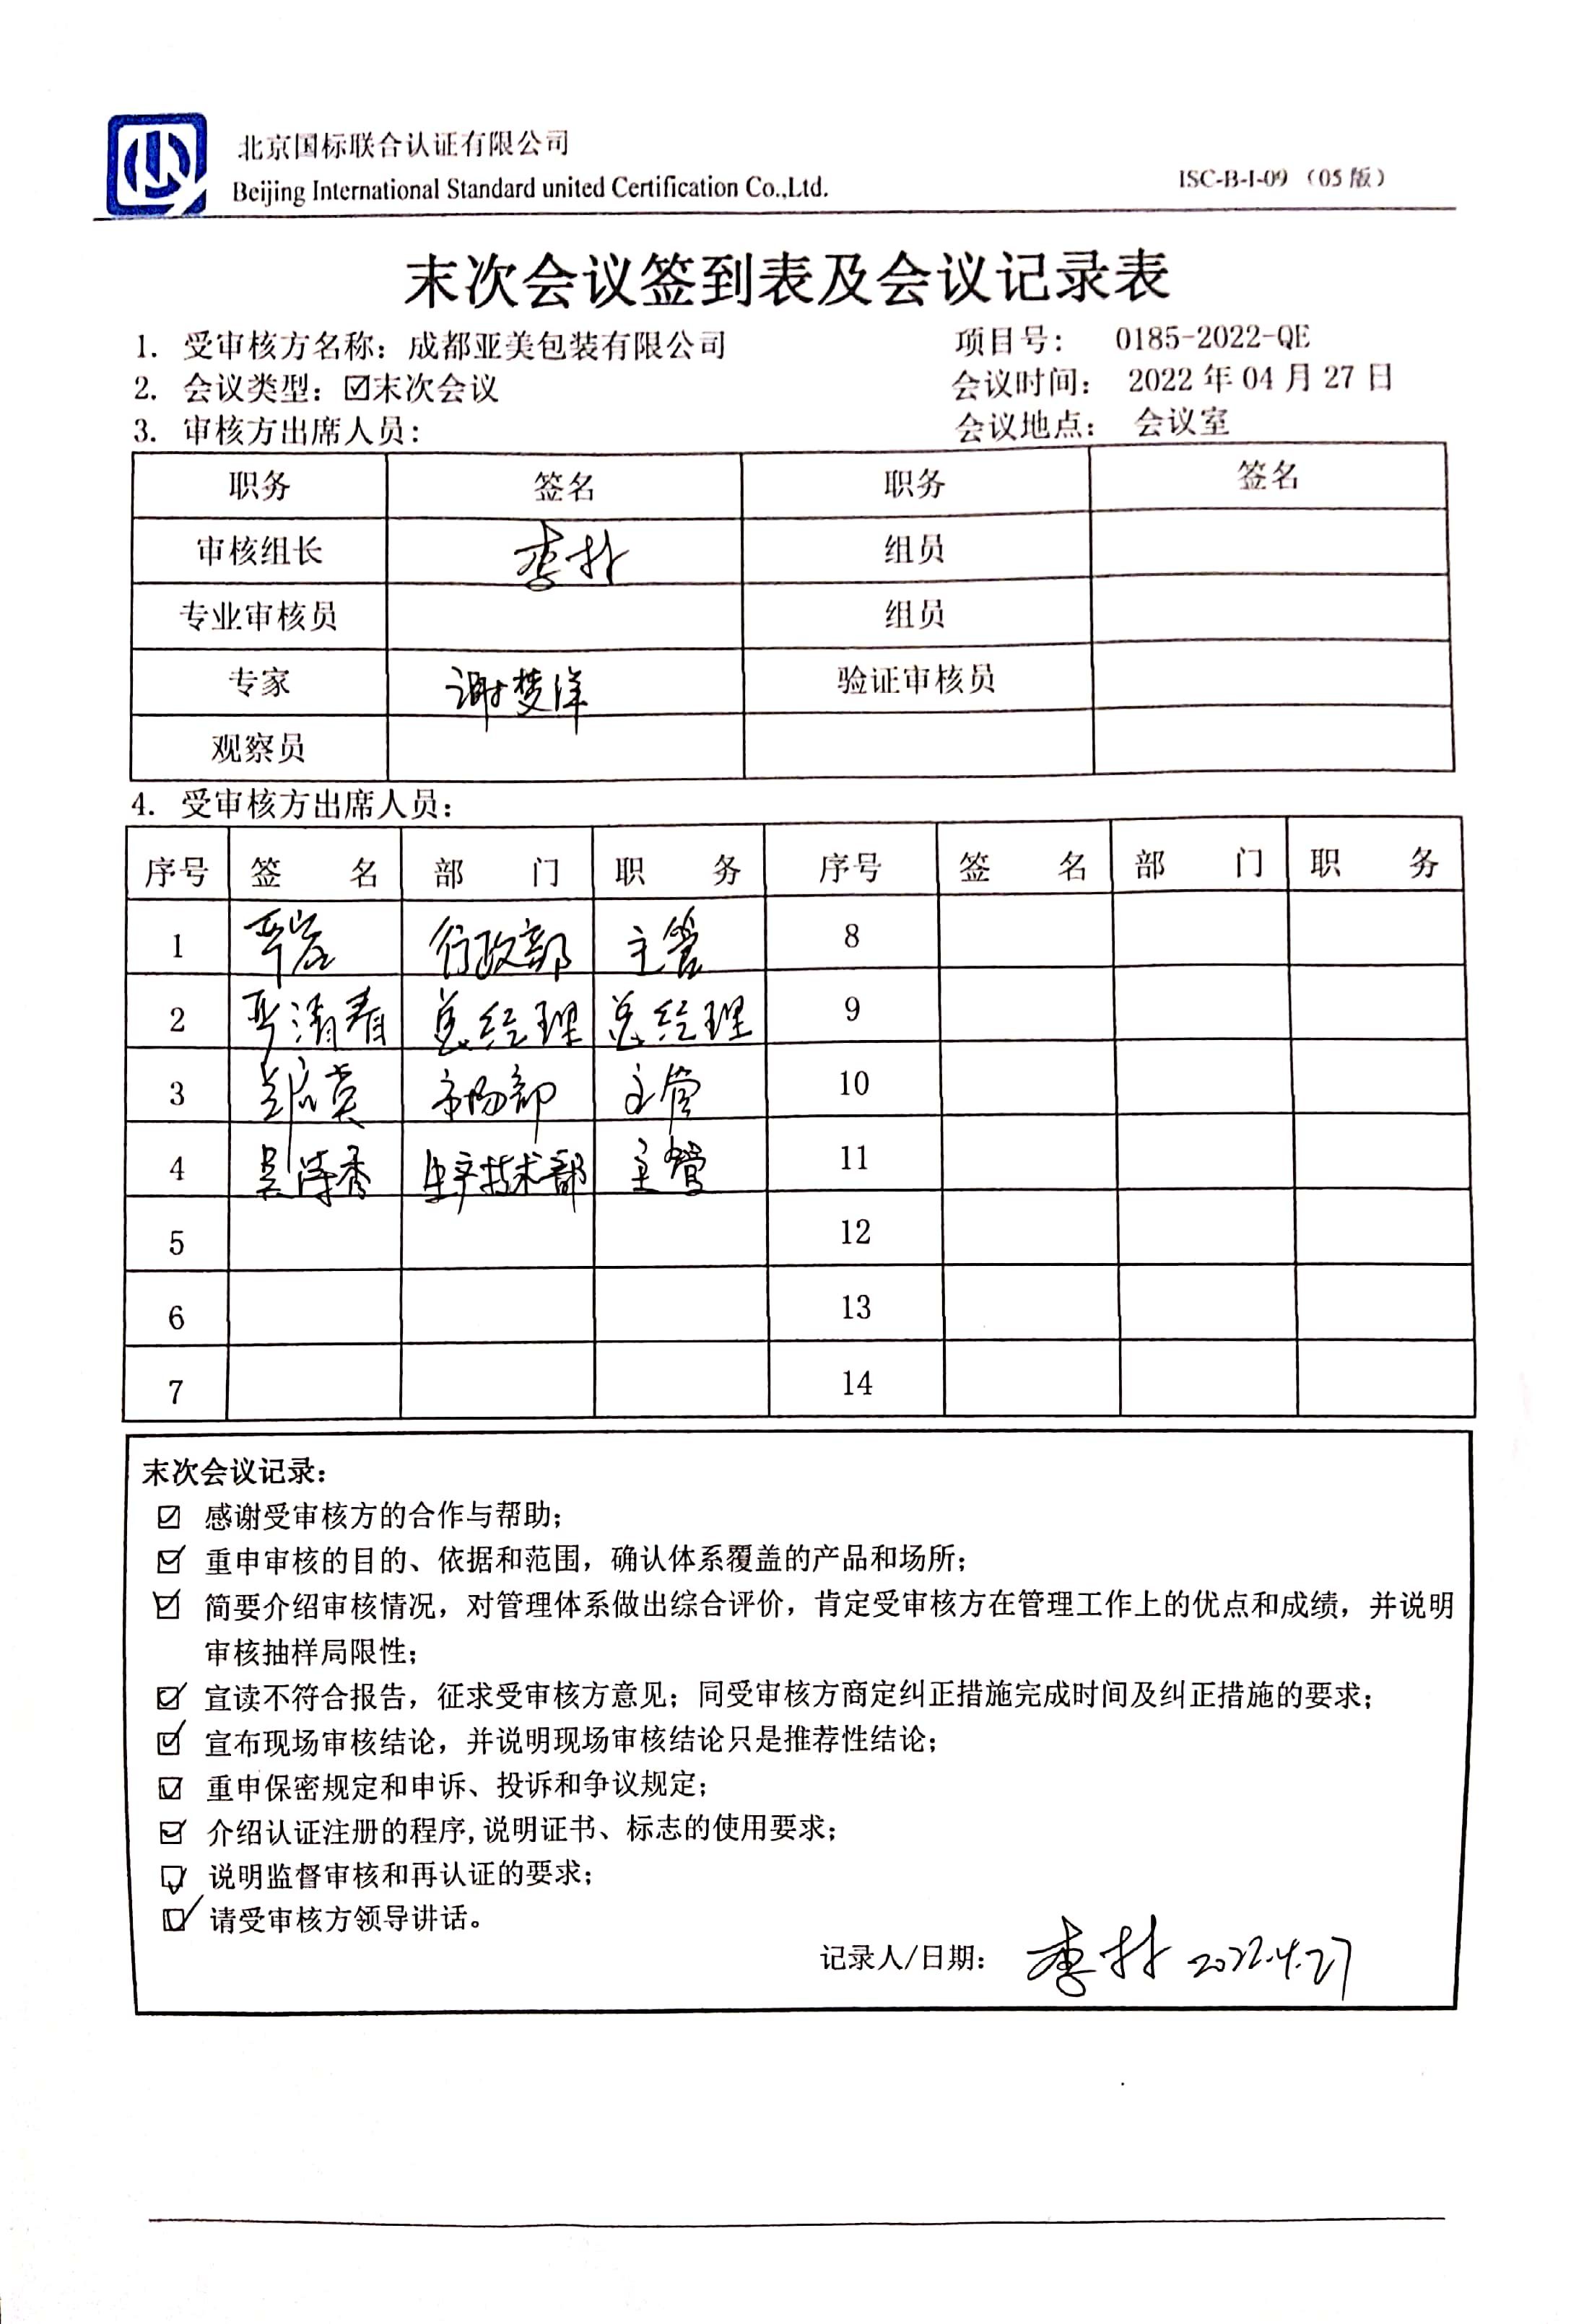 北京国标联合认证有限公司
Beijing International Standard united Certification Co.,Ltd.
ISC-B-I-09（05版）
末次会议签到表及会议记录表
1. 受审核方名称：成都亚美包装有限公司 项目号： 0185-2022-QE
2. 会议类型：☑末次会议 会议时间： 2022 年 04 月 27 日
3. 审核方出席人员： 会议地点： 会议室
职务 签名 职务 签名
审核组长 李朴 组员
专业审核员 组员
专家 谢梦洋 验证审核员
观察员
4. 受审核方出席人员：
序号 签 名 部 门 职 务 序号 签 名 部 门 职 务
1 行政部 主管 8
2 严清春 总经理 总经理 9
3 市场部 主管 10
4 生产技术部 主管 11
5 12
6 13
7 14
末次会议记录：
☑ 感谢受审核方的合作与帮助；
☑ 重申审核的目的、依据和范围，确认体系覆盖的产品和场所；
☑ 简要介绍审核情况，对管理体系做出综合评价，肯定受审核方在管理工作上的优点和成绩，并说明
审核抽样局限性；
☑ 宣读不符合报告，征求受审核方意见；同受审核方商定纠正措施完成时间及纠正措施的要求；
☑ 宣布现场审核结论，并说明现场审核结论只是推荐性结论；
☑ 重申保密规定和申诉、投诉和争议规定；
☑ 介绍认证注册的程序,说明证书、标志的使用要求；
☑ 说明监督审核和再认证的要求；
☑ 请受审核方领导讲话。
记录人/日期： 李朴 2022.4.27